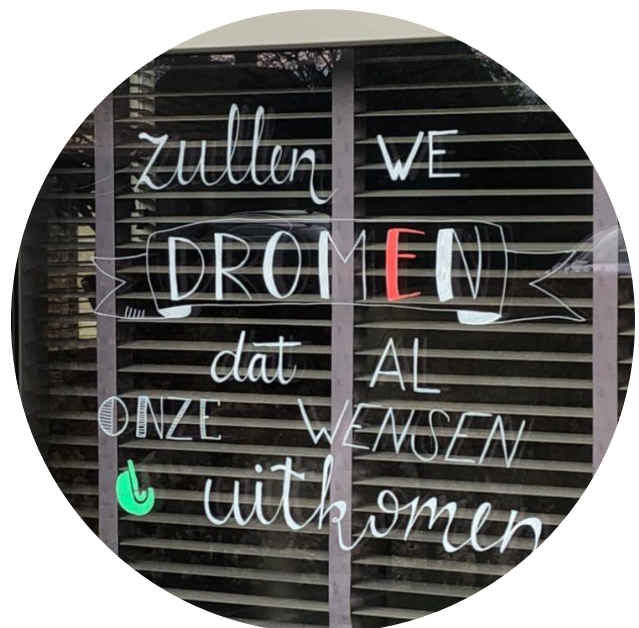 zullen WE
DROMEN
dat AL
ONZE WENSEN
uitkomen